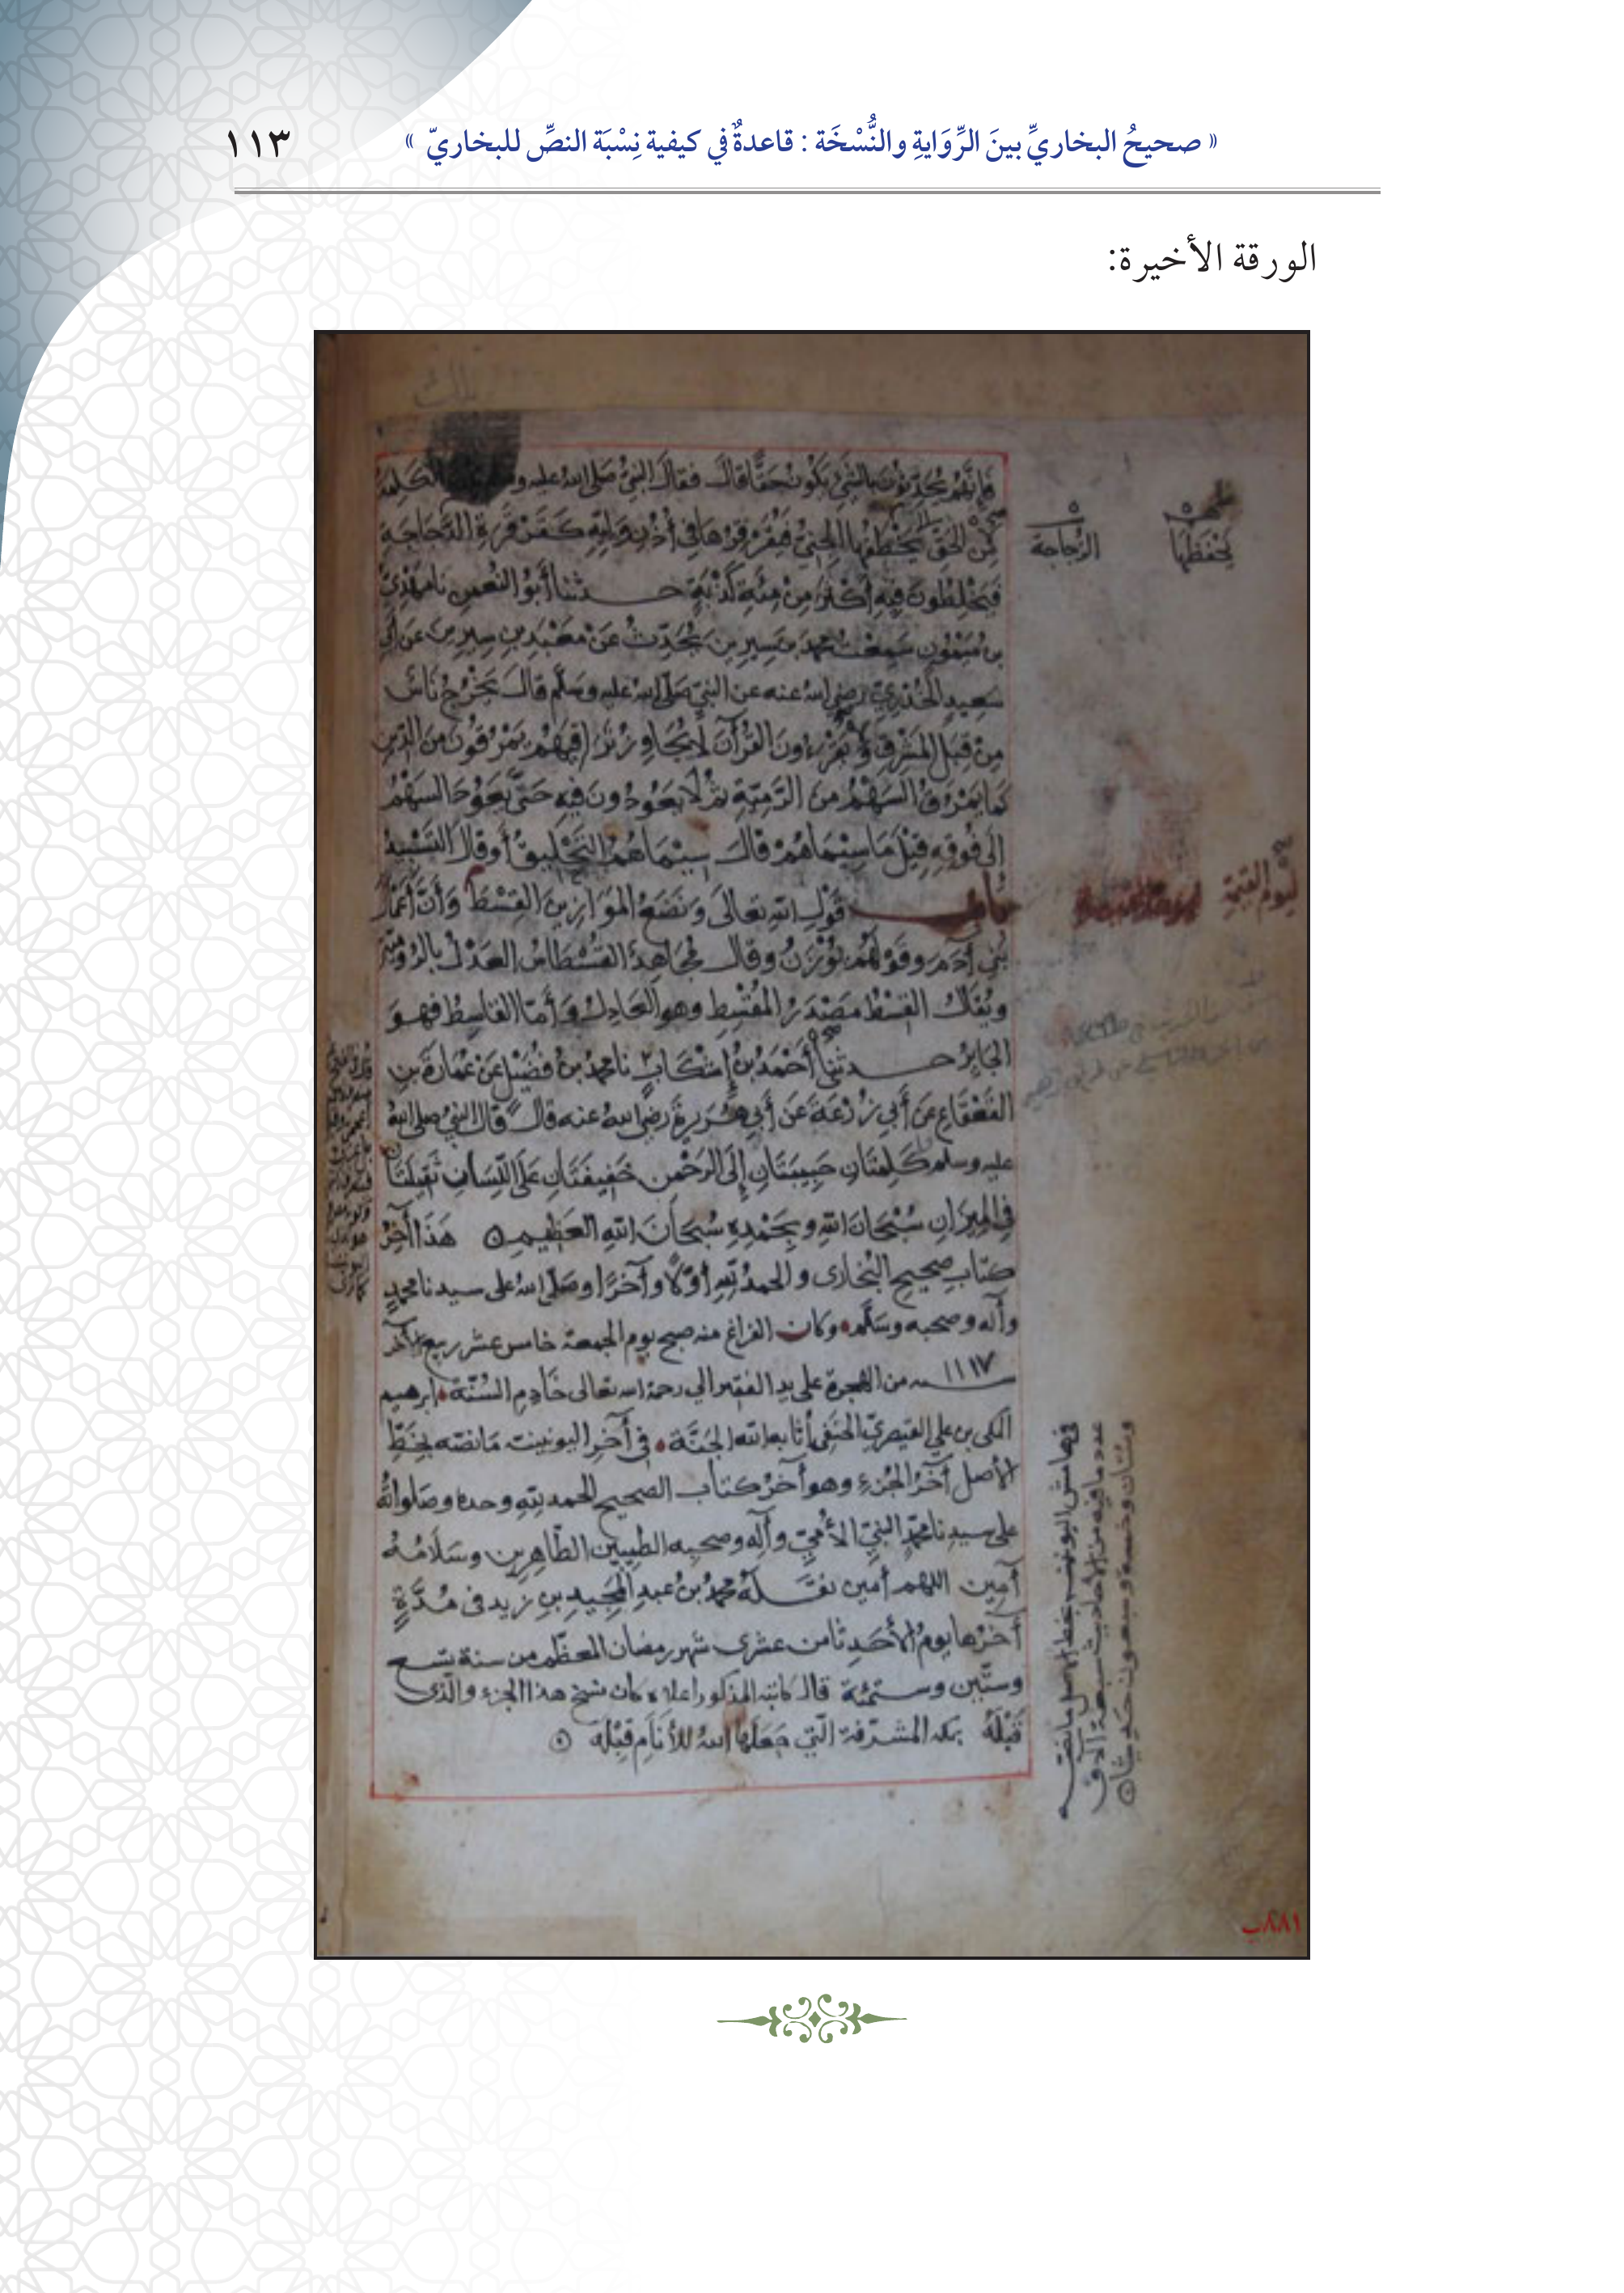 « صحيحُ البخاريِّ بينَ الرِّوَايةِ والنُّسْخَة : قاعدةٌ في كيفية نِسْبَة النصِّ للبخاريّ »
١١٣
الورقة الأخيرة:
فإنهم يحدثون بالشيء يكون حقا قال فقال النبي صلى الله عليه الكلمة
من الحق يخطفها الجني فيقرقرها في أذن وليه كقرقرة الدجاجة
فيخلطون فيه أكثر من مئة كذبة حدثنا أبو النعمن نا مهدي
بن ميمون سمعت محمد بن سيرين يحدث عن معبد بن سيرين عن أبي
سعيد الخدري رضي الله عنه عن النبي صلى الله عليه وسلم قال يخرج ناس
من قبل المشرق ويقرءون القرآن لا يجاوز تراقيهم يمرقون من الدين
كما يمرق السهم من الرمية ثم لا يعودون فيه حتى يعود السهم
إلى فوقه قيل ما سيماهم قال سيماهم التحليق أو قال التسبيد
باب قول الله تعالى ونضع الموازين القسط وأن أعمال
بني آدم وقولهم يوزن وقال مجاهد القسطاس العدل بالرومية
ويقال القسط مصدر المقسط وهو العادل وأما القاسط فهو
الجاير حدثني أحمد بن إشكاب نا محمد بن فضيل عن عمارة بن
القعقاع عن أبي زرعة عن أبي هريرة رضي الله عنه قال قال النبي صلى الله
عليه وسلم كلمتان حبيبتان إلى الرحمن خفيفتان على اللسان ثقيلتان
في الميزان سبحان الله وبحمده سبحان الله العظيم هذا آخر
كتاب صحيح البخاري والحمد لله أولا وآخرا وصلى الله على سيدنا محمد
وآله وصحبه وسلم وكان الفراغ منه صبح يوم الجمعة خامس عشر ربيع الآخر
سنة ١١١٧ من الهجرة على يد الفقير إلى رحمة الله تعالى خادم السنة إبرهيم
المكي بن علي القيصري الحنفي أثابه الله الجنة في آخر اليونينية ما نصه بخط
الأصل آخر الجزء وهو آخر كتاب الصحيح الحمد لله وحده وصلواته
على سيدنا محمد النبي الأمي وآله وصحبه الطيبين الطاهرين وسلامه
آمين اللهم آمين نقله محمد بن عبد المجيد بن زيد في مدة
آخرها يوم الأحد ثامن عشري شهر رمضان المعظم من سنة تسع
وستين وستمئة قال كاتبه المذكور أعلاه كان نسخ هذا الجزء والذي
قبله بمكة المشرفة التي جعلها الله للأنام قبلة
يحفظها
الزجاجة
ليوم القيمة
في هامش اليونينية بخط الأصل ما نصه
عدد ما فيه من الأحاديث سبعة آلاف
ومئتان وخمسة وسبعون حديثا
٨٨١ب